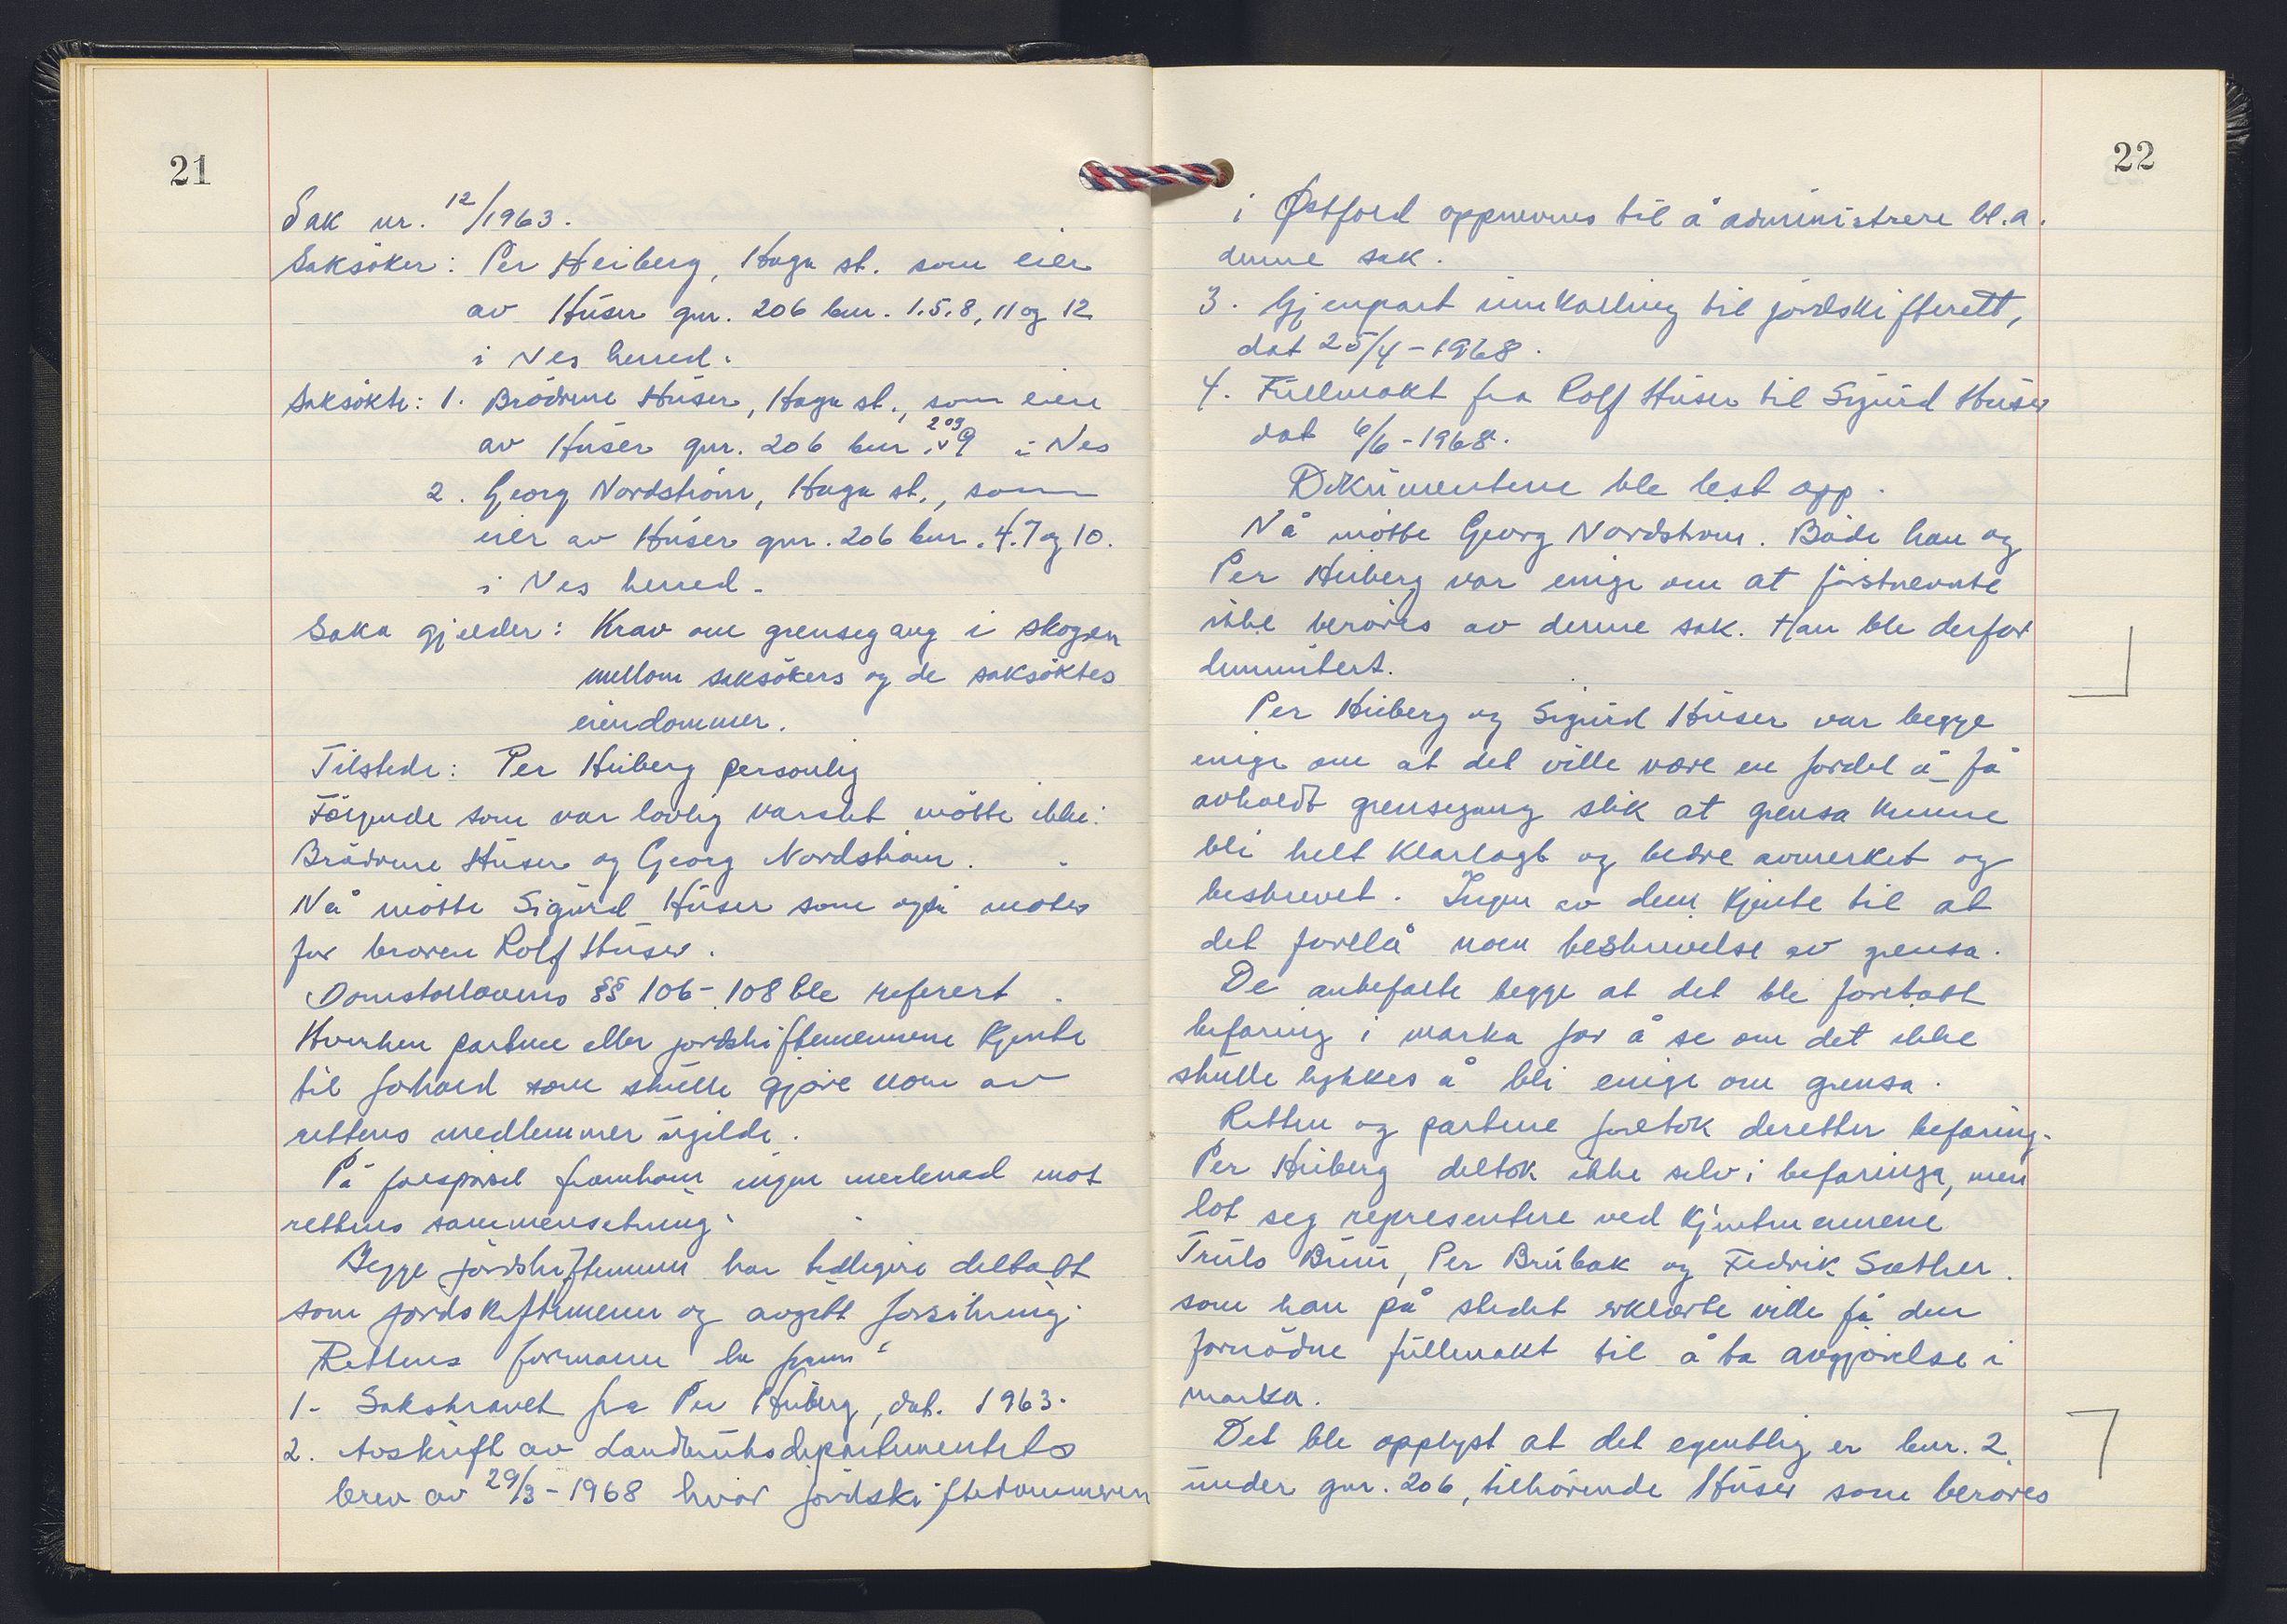 21
Sak nr. 12/1963.
Saksøker: Per Heiberg, Haga st. som eier
av Huser gnr. 206 bnr. 1.5.8, 11 og 12
i Nes herred.
Saksøkte: 1. Brödrene Huser, Haga st., som eiere
av Huser gnr. 206 bnr. 2 og 9 i Nes
2. Georg Nordstrøm, Haga st., som
eier av Huser gnr. 206 bnr. 4.7 og 10.
i Nes herred.
Saka gjelder: Krav om grensegang i skogen
mellom saksøkers og de saksøktes
eiendommer.
Tilstede: Per Heiberg personlig
Følgende som var lovlig varslet møtte ikke:
Brødrene Huser og Georg Nordstrøm.
Nå møtte Sigurd Huser som også møter
for broren Rolf Huser.
Domstollovens §§ 106-108 ble referert.
Hverken partene eller jordskiftemennene kjente
til forhold som skulle gjøre noen av
rettens medlemmer ugilde.
På forespørsel framkom ingen merknad mot
rettens sammensetning.
Begge jordskiftemenn har tidligere deltatt
som jordskiftemenn og avgitt forsikring.
Rettens formann la fram:
1. Sakskravet fra Per Heiberg, dat. 1963.
2. Avskrift av Landbruksdepartementets
brev av 29/3-1968 hvor jordskiftedommeren
22
i Østfold oppnevnes til å administrere bl.a.
denne sak.
3. Gjenpart innkalling til jordskifterett,
dat 25/4-1968.
4. Fullmakt fra Rolf Huser til Sigurd Huser
dat 6/6-1968.
Dokumentene ble lest opp.
Nå møtte Georg Nordstrøm. Både han og
Per Heiberg var enige om at førstnevnte
ikke berøres av denne sak. Han ble derfor
dimmitert.
Per Heiberg og Sigurd Huser var begge
enige om at det ville være en fordel å få
avholdt grensegang slik at grensa kunne
bli helt klarlagt og bedre avmerket og
beskrevet. Ingen av dem kjente til at
det forelå noen beskrivelse av grensa.
De anbefalte begge at det ble foretatt
befaring i marka for å se om det ikke
skulle lykkes å bli enige om grensa.
Retten og partene foretok deretter befaring.
Per Heiberg deltok ikke selv i befaringa, men
lot seg representere ved kjentmennene
Truls Bruu, Per Brubak og Fedrik Sæther.
som han på stedet erklærte ville få den
fornødne fullmakt til å ta avgjørelse i
marka.
Det ble opplyst at det egentlig er bnr. 2
under gnr. 206, tilhørende Huser som berøres